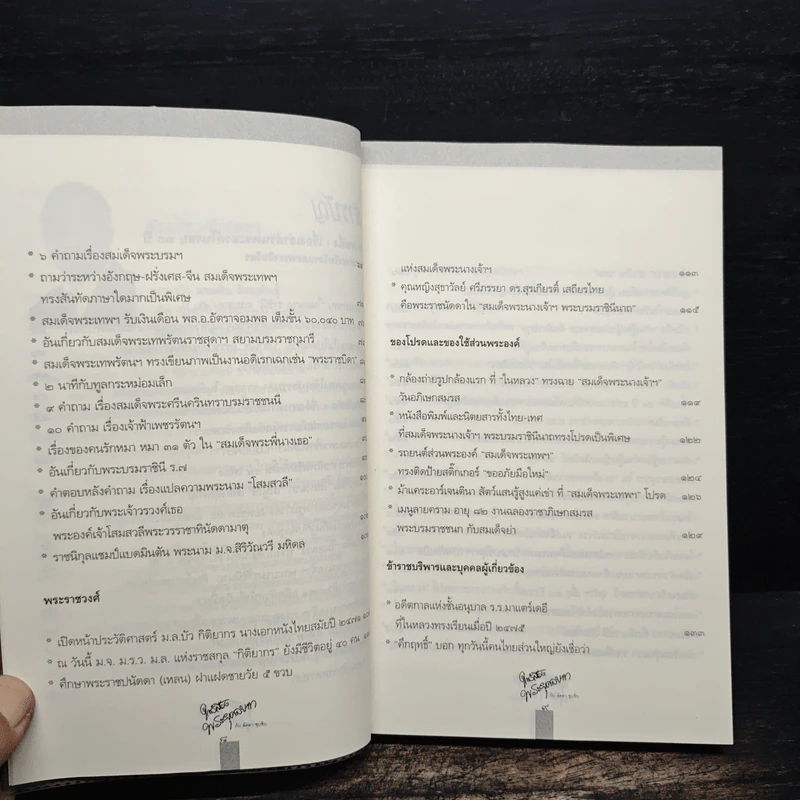 * ๖ คำถามเรื่องสมเด็จพระบรมฯ
* ถามว่าระหว่างอังกฤษ-ฝรั่งเศส-จีน สมเด็จพระเทพฯ
ทรงสันทัดภาษาใดมากเป็นพิเศษ
* สมเด็จพระเทพฯ รับเงินเดือน พล.อ.อัตราจอมพล เต็มขั้น ๖๐,๐๔๐ บาท
* อันเกี่ยวกับสมเด็จพระเทพรัตนราชสุดาฯ สยามบรมราชกุมารี
* สมเด็จพระเทพรัตนฯ ทรงเขียนภาพเป็นงานอดิเรกเฉกเช่น "พระราชบิดา"
* ๒ นาทีกับทูลกระหม่อมเล็ก
* ๙ คำถาม เรื่องสมเด็จพระศรีนครินทราบรมราชชนนี
* ๑๐ คำถาม เรื่องเจ้าฟ้าเพชรรัตนฯ
* เรื่องของคนรักหมา หมา ๓๑ ตัว ใน "สมเด็จพระพี่นางเธอ"
* อันเกี่ยวกับพระบรมราชินี ร.๗
* คำตอบหลังคำถาม เรื่องแปลความพระนาม "โสมสวลี"
* อันเกี่ยวกับพระเจ้าวรวงศ์เธอ
พระองค์เจ้าโสมสวลีพระวรราชาทินัดดามาตุ
* ราชนิกุลแชมป์แบดมินตัน พระนาม ม.จ.สิริวัณวรี มหิดล
พระราชวงศ์
* เปิดหน้าประวัติศาสตร์ ม.ล.บัว กิติยากร นางเอกหนังไทยสมัยปี ๒๔๗๑
* ณ วันนี้ ม.จ. ม.ร.ว. ม.ล. แห่งราชสกุล "กิติยากร" ยังมีชีวิตอยู่ ๔๐ คน
* ศึกษาพระราชปนัดดา (เหลน) ฝาแฝดชายวัย ๕ ขวบ
แห่งสมเด็จพระนางเจ้าฯ ๑๑๓
* คุณหญิงสุธาวัลย์ ศรีภรรยา ดร.สุรเกียรติ์ เสถียรไทย
คือพระราชนัดดาใน "สมเด็จพระนางเจ้าฯ พระบรมราชินีนาถ" ๑๑๕
ของโปรดและของใช้ส่วนพระองค์
* กล้องถ่ายรูปกล้องแรก ที่ "ในหลวง" ทรงฉาย "สมเด็จพระนางเจ้าฯ"
วันอภิเษกสมรส ๑๑๙
* หนังสือพิมพ์และนิตยสารทั้งไทย-เทศ
ที่สมเด็จพระนางเจ้าฯ พระบรมราชินีนาถทรงโปรดเป็นพิเศษ ๑๒๒
* รถยนต์ส่วนพระองค์ "สมเด็จพระเทพฯ"
ทรงติดป้ายสติ๊กเกอร์ "ขออภัยมือใหม่" ๑๒๔
* ม้าแคระอาร์เจนตินา สัตว์แสนรู้สูงแค่เข่า ที่ "สมเด็จพระเทพฯ" โปรด ๑๒๖
* เมนูลายคราม อายุ ๘๒ งานฉลองราชาภิเษกสมรส
พระบรมราชชนก กับสมเด็จย่า ๑๒๙
ข้าราชบริพารและบุคคลผู้เกี่ยวข้อง
* อดีตกาลแห่งชั้นอนุบาล ร.ร.มาแตร์เดอี
ที่ในหลวงทรงเรียนเมื่อปี ๒๔๗๕ ๑๓๓
* "ศึกฤทธิ์" บอก ทุกวันนี้คนไทยส่วนใหญ่ยังเชื่อว่า